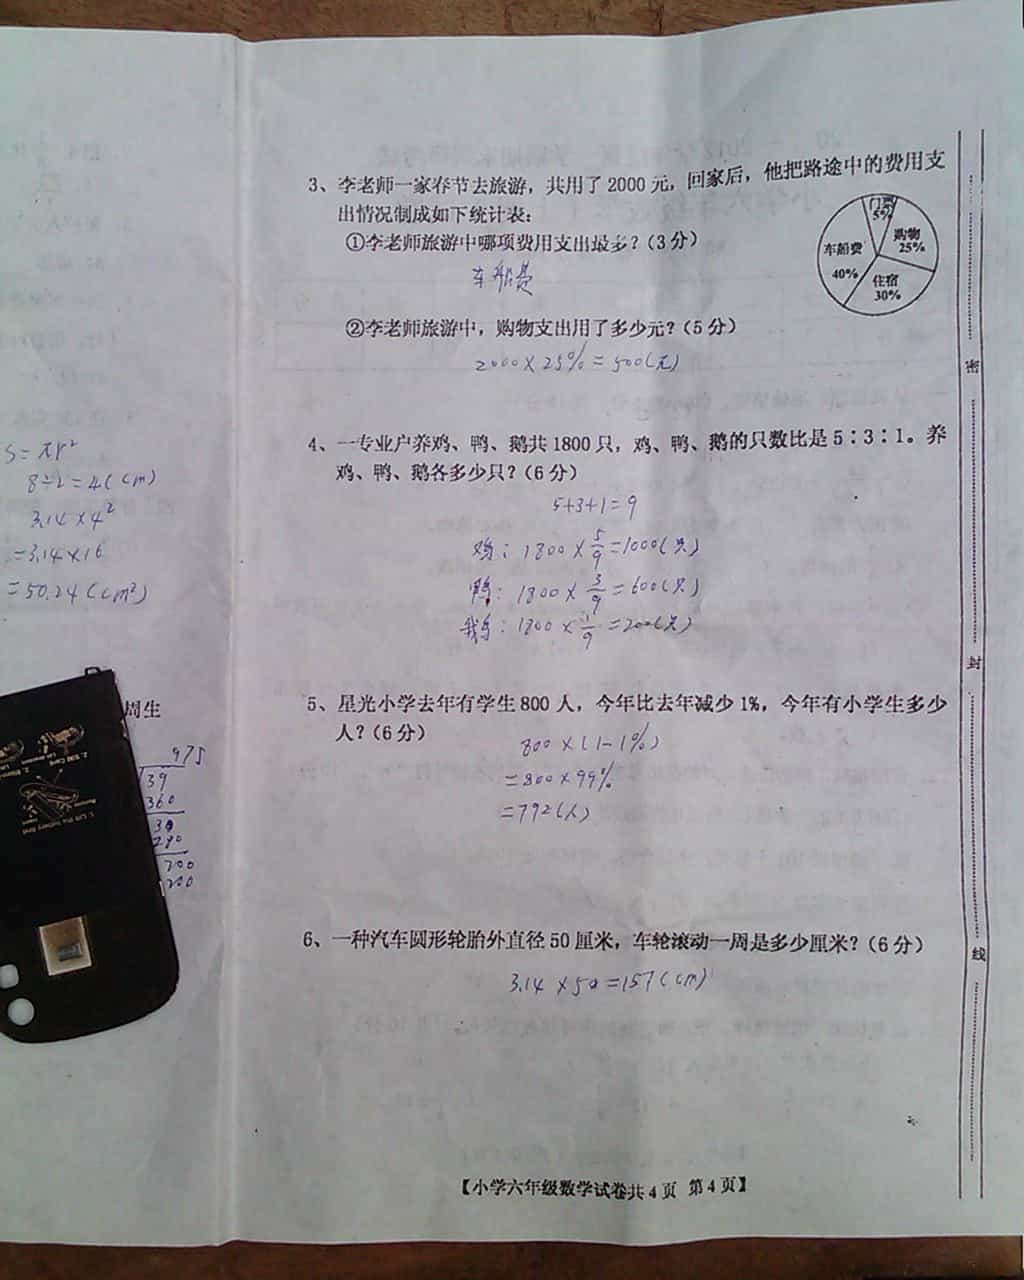 3、李老师一家春节去旅游，共用了2000元，回家后，他把路途中的费用支
出情况制成如下统计表：
①李老师旅游中哪项费用支出最多？（3分）
车船费
门票
5%
购物
25%
车船费
40%
住宿
30%
②李老师旅游中，购物支出用了多少元？（5分）
2000×25%=500(元)
4、一专业户养鸡、鸭、鹅共1800只，鸡、鸭、鹅的只数比是5∶3∶1。养
鸡、鸭、鹅各多少只？（6分）
5+3+1=9
鸡：1800×5/9=1000(只)
鸭：1800×3/9=600(只)
鹅：1800×1/9=200(只)
5、星光小学去年有学生800人，今年比去年减少1%，今年有小学生多少
人？（6分）
800×(1-1%)
=800×99%
=792(人)
6、一种汽车圆形轮胎外直径50厘米，车轮滚动一周是多少厘米？（6分）
3.14×50=157(cm)
【小学六年级数学试卷共4页 第4页】
密
封
线
S=πr²
8÷2=4(cm)
3.14×4²
=3.14×16
=50.24(cm²)
周生
975
39
360